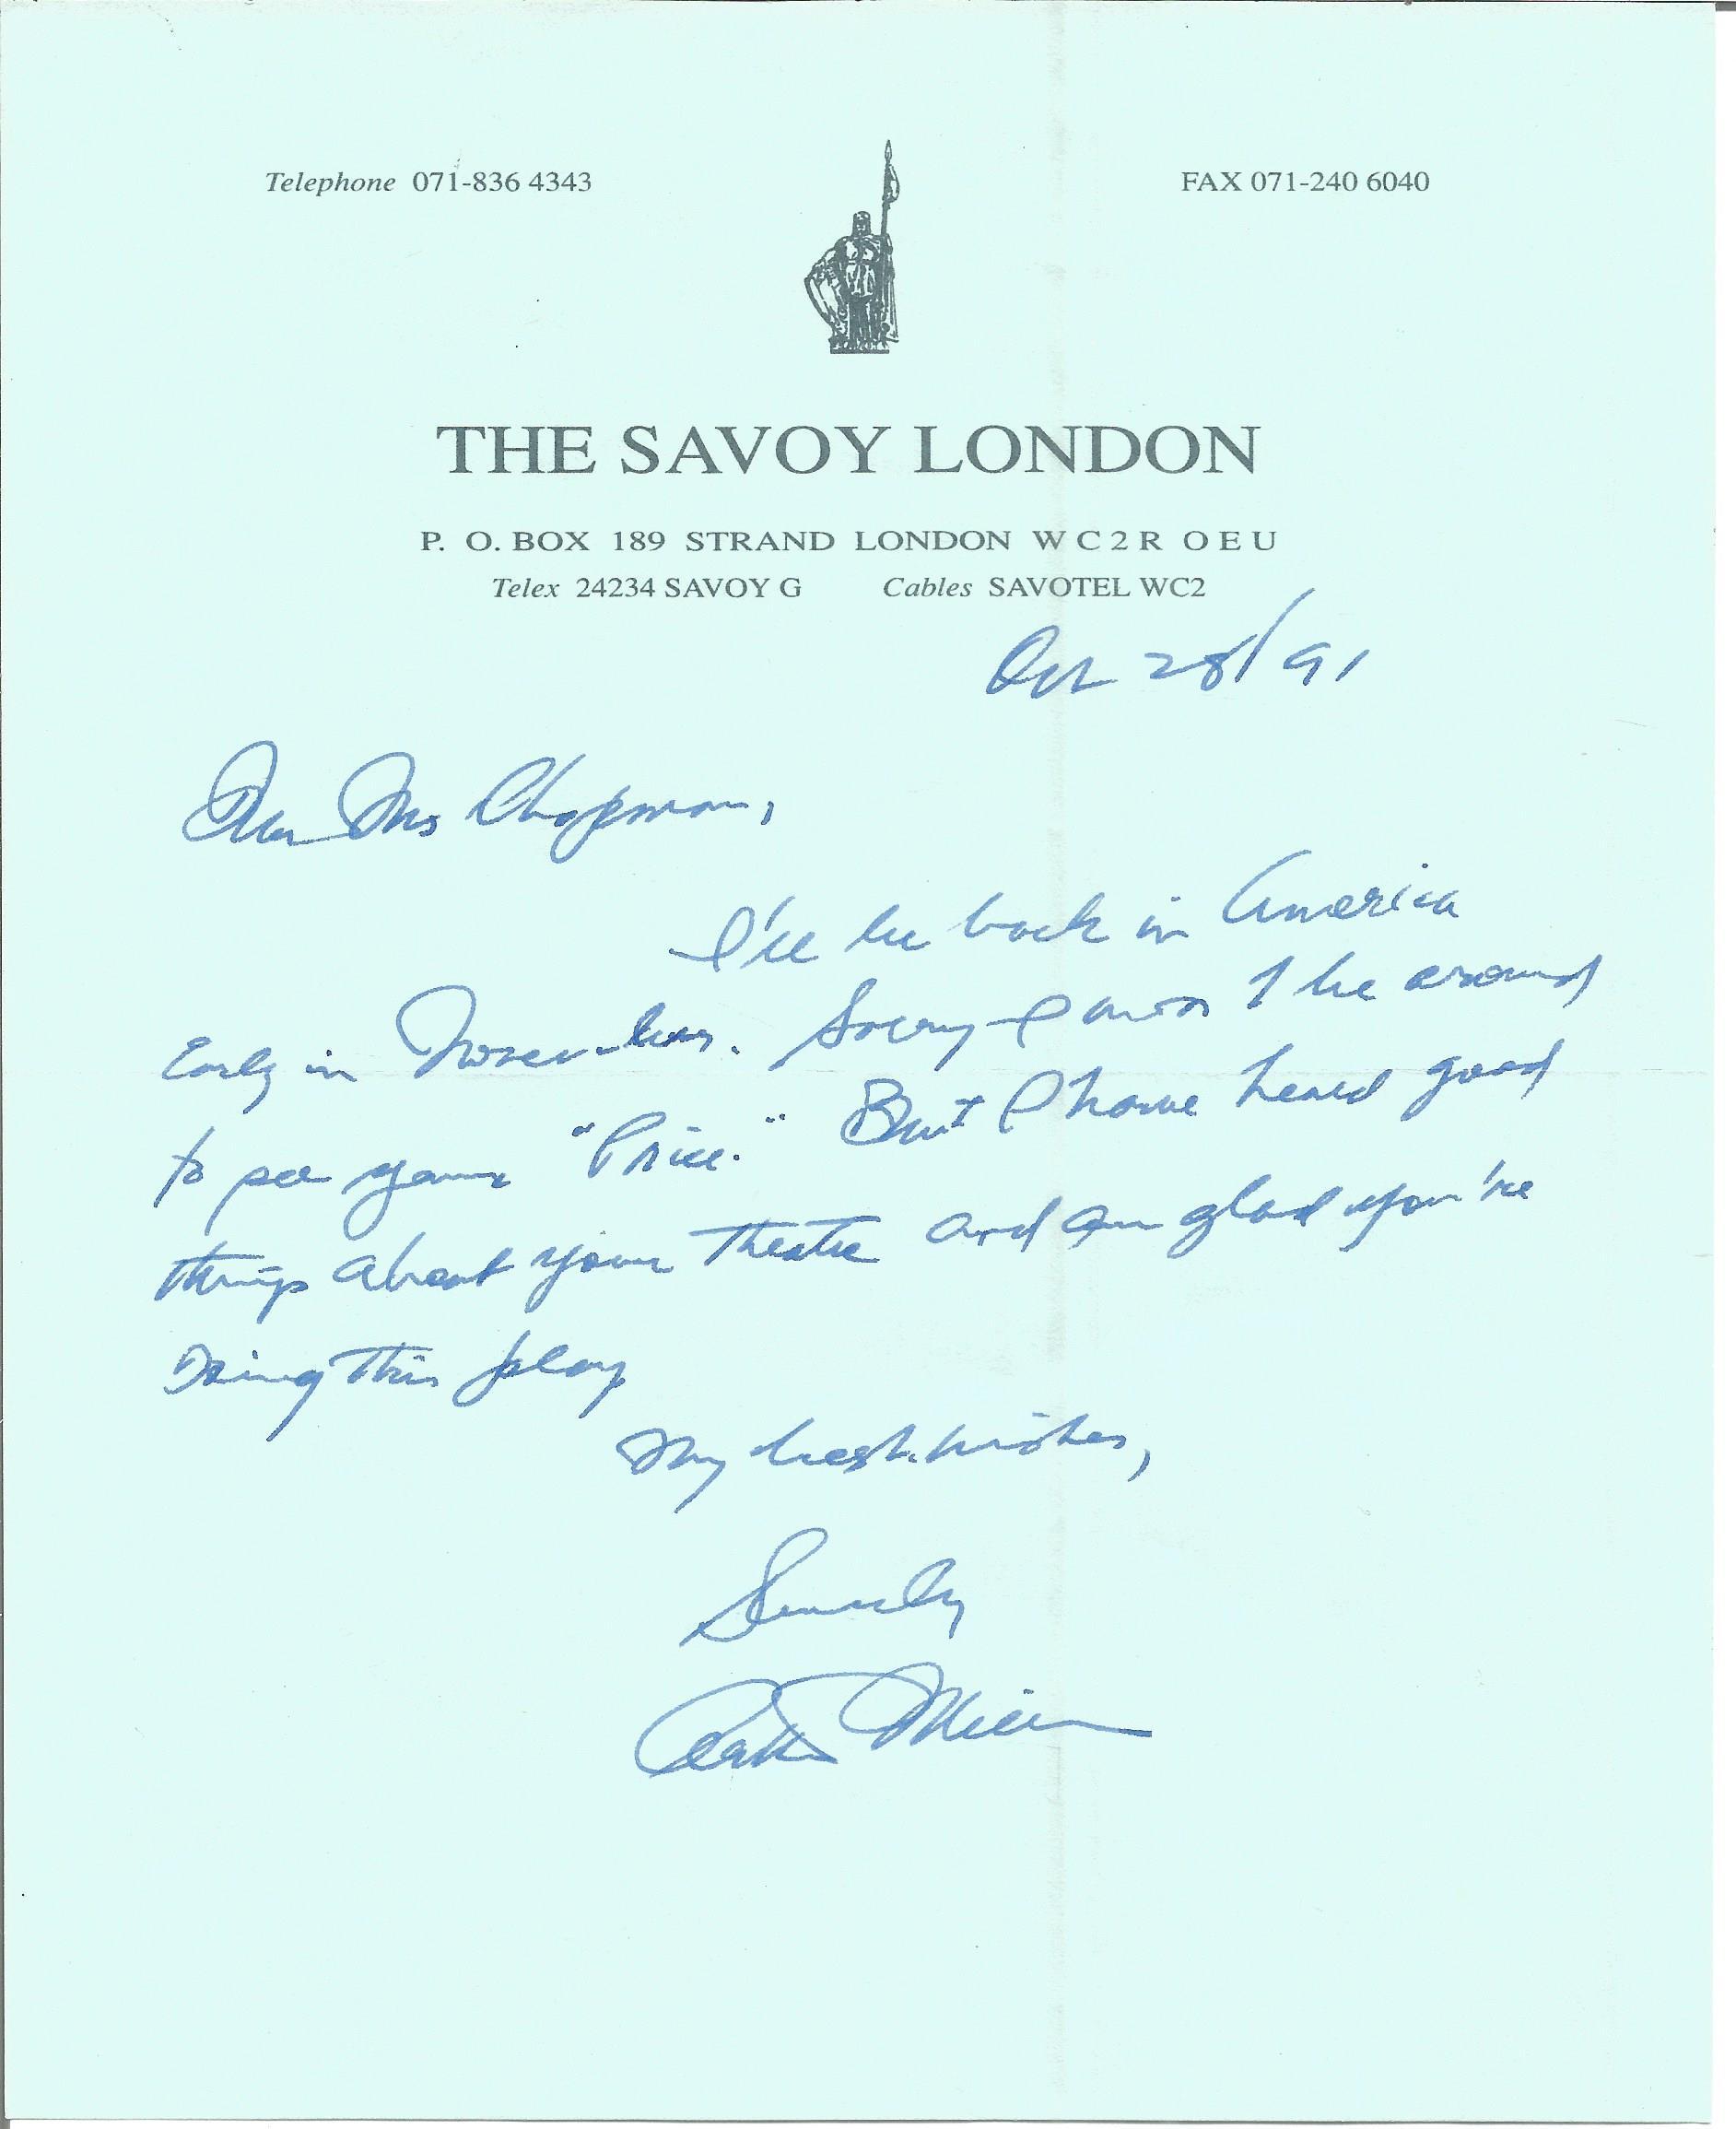 Telephone 071-836 4343
FAX 071-240 6040
THE SAVOY LONDON
P. O. BOX 189 STRAND LONDON WC2R OEU
Telex 24234 SAVOY G Cables SAVOTEL WC2
Oct 28/91
Dear Ms Chapman,
I'll be back in America
Early in November. Sorry I won't be around
to see your "Price." But I have heard good
things about your theatre and am glad you're
doing this play
My best wishes,
Sincerely
Arthur Miller